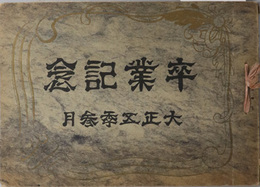 卒業記念
大正五季叁月